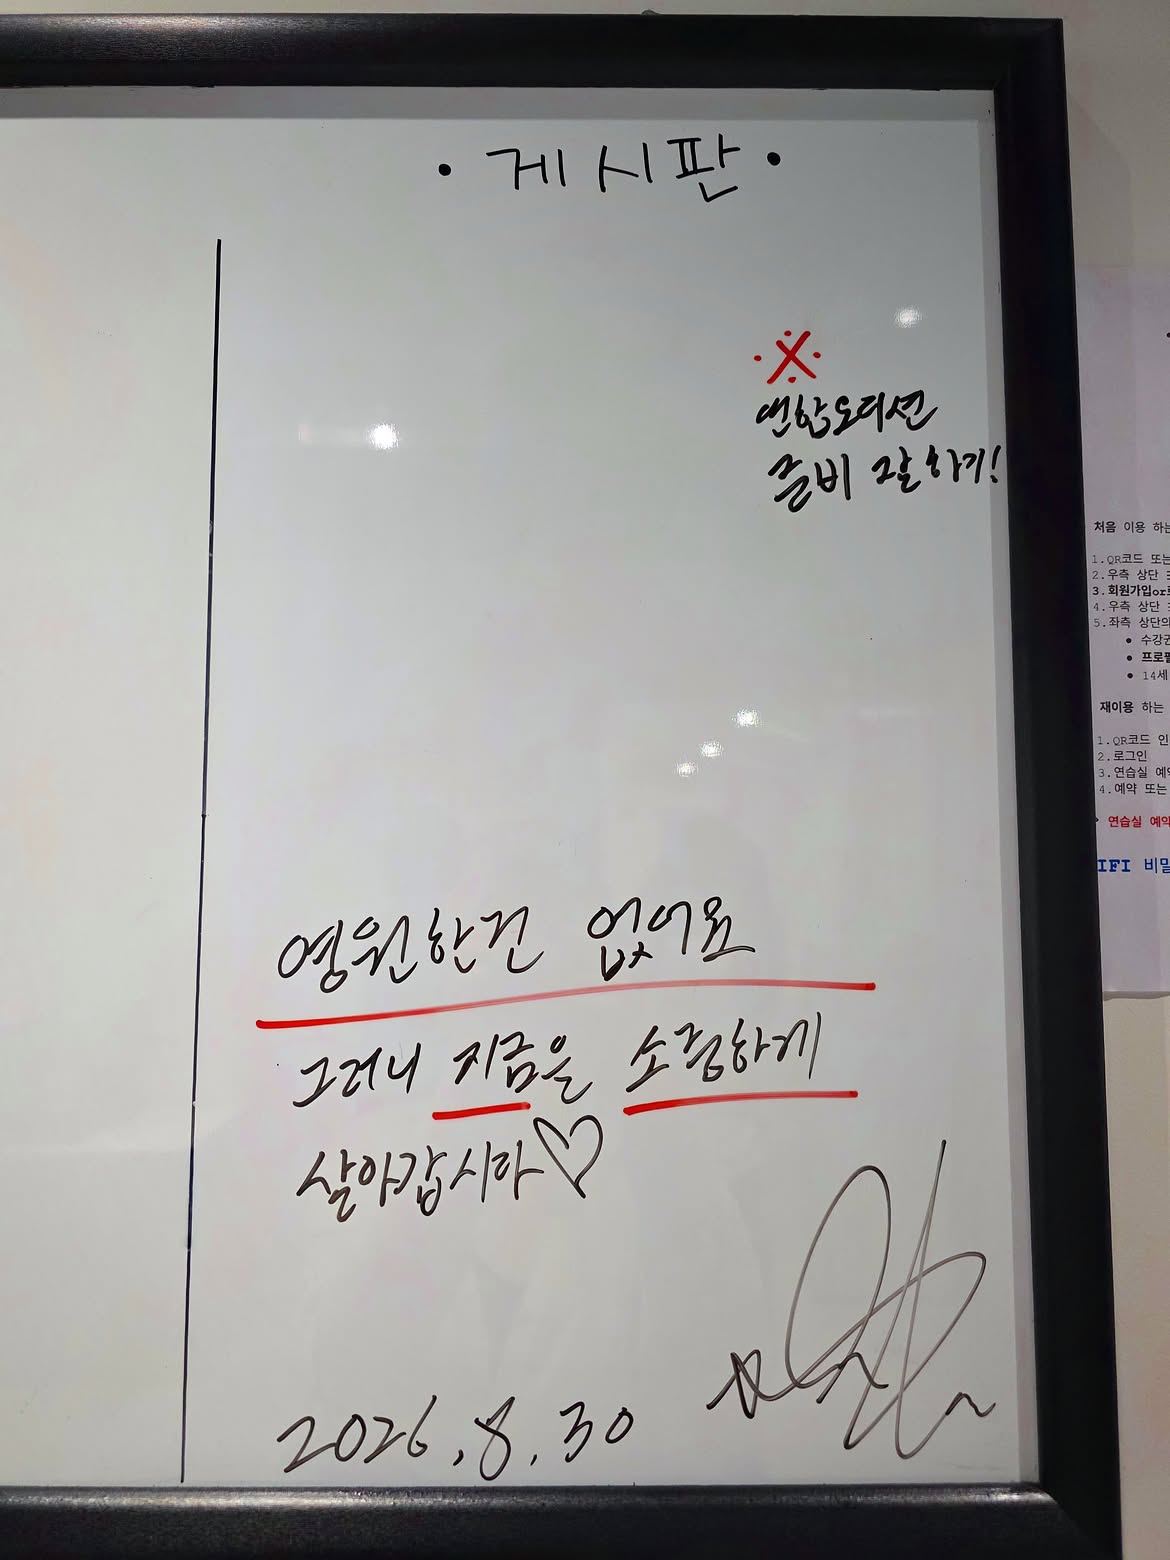 · 게시판 ·
※
연합오디션
준비 잘하기!
영원한건 없어요
그러니 지금은 소중하게
살아갑시다♡
2026.8.30
처음 이용 하는
1.QR코드 또는
2.우측 상단
3.회원가입or
4.우측 상단
5.좌측 상단의
• 수강권
• 프로필
• 14세
재이용 하는
1.QR코드 인
2.로그인
3.연습실 예약
4.예약 또는
연습실 예약
IFI 비밀